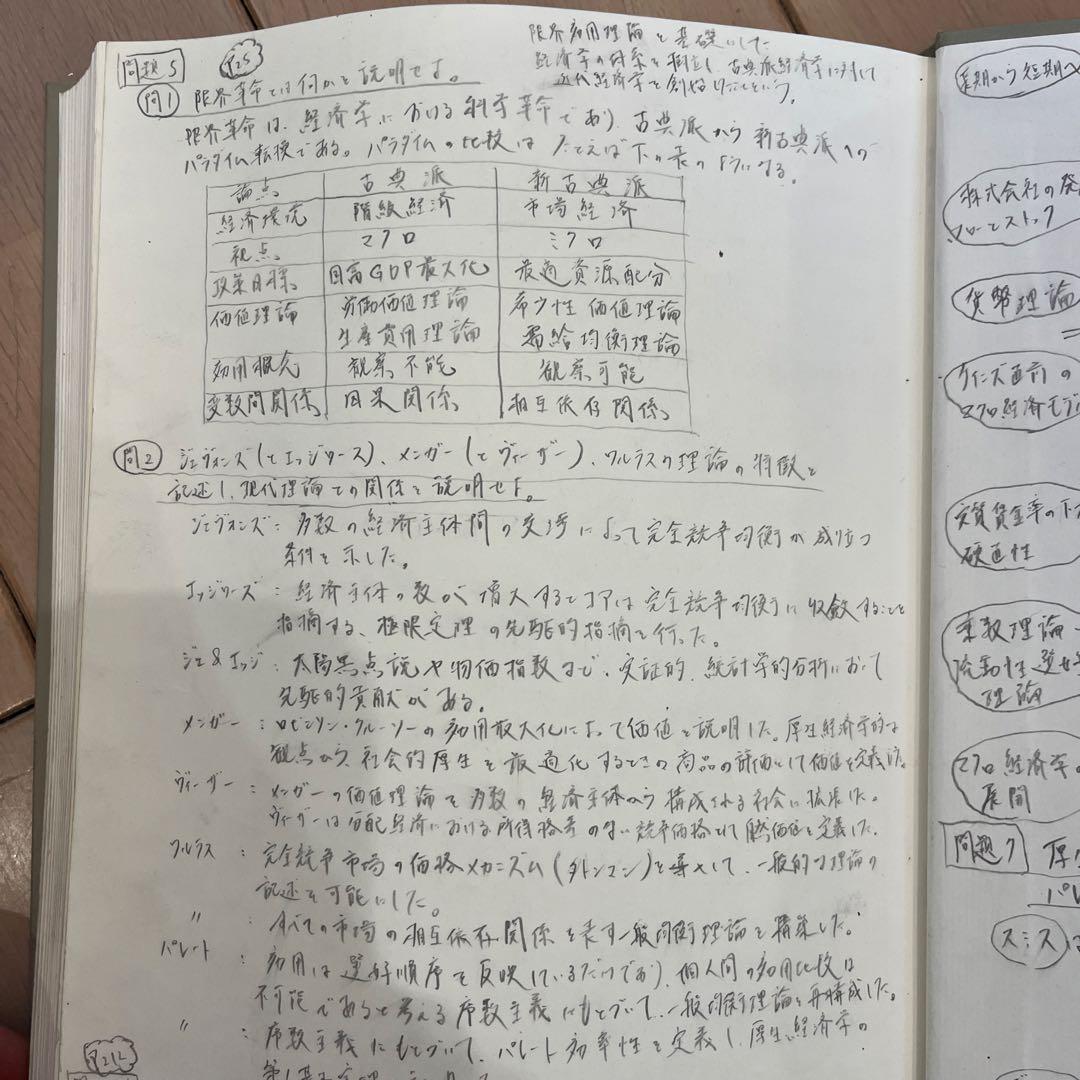 問題5
P25
限界効用理論を基礎にした
経済学の体系を樹立し、古典派経済学に対して
近代経済学を創始したことをいう。
問1 限界革命とは何かを説明せよ。
限界革命は、経済学における科学革命であり、古典派から新古典派への
パラダイム転換である。パラダイムの比較はたとえば下の表のようになる。
論点 古典派 新古典派
経済環境 階級経済 市場経済
視点 マクロ ミクロ
政策目標 国富GDP最大化 最適資源配分
価値理論 労働価値理論 希少性価値理論
生産費用理論 需給均衡理論
効用概念 観察不能 観察可能
変数間関係 因果関係 相互依存関係
問2 ジェヴォンズ(とエッジワース)、メンガー(とヴィーザー)、ワルラスの理論の特徴を
記述し、現代理論との関係を説明せよ。
ジェヴォンズ:多数の経済主体間の交渉によって完全競争均衡が成り立つ
条件を示した。
エッジワーズ:経済主体の数が増大するとコアは完全競争均衡に収斂することを
指摘する、極限定理の先駆的指摘を行った。
ジェ&エッジ:太陽黒点説や物価指数など、実証的、統計学的分析において
先駆的貢献がある。
メンガー:ロビンソン・クルーソーの効用最大化によって価値を説明した。厚生経済学的な
観点から、社会的厚生を最適化するときの商品の評価として価値を定義した。
ヴィーザー:メンガーの価値理論を多数の経済主体から構成される社会に拡張した。
ヴィーザーは分配経済における所得格差のない競争価格として自然価値を定義した。
ワルラス:完全競争市場の価格メカニズム(タトンマン)を導入して、一般的な理論の
記述を可能にした。
〃:すべての市場の相互依存関係を表す一般均衡理論を構築した。
パレート:効用は選好順序を反映しているだけであり、個人間の効用比較は
不可能であると考える序数主義にもとづいて、一般均衡理論を再構成した。
〃:序数主義にもとづいて、パレート効率性を定義し、厚生経済学の
P212
長期から短期へ
株式会社の発
フローとストック
貨幣理論
ケインズ直前の
マクロ経済モデ
実質賃金率の下方
硬直性
乗数理論
流動性選好
理論
マクロ経済学の
展開
問題7 厚
スミス